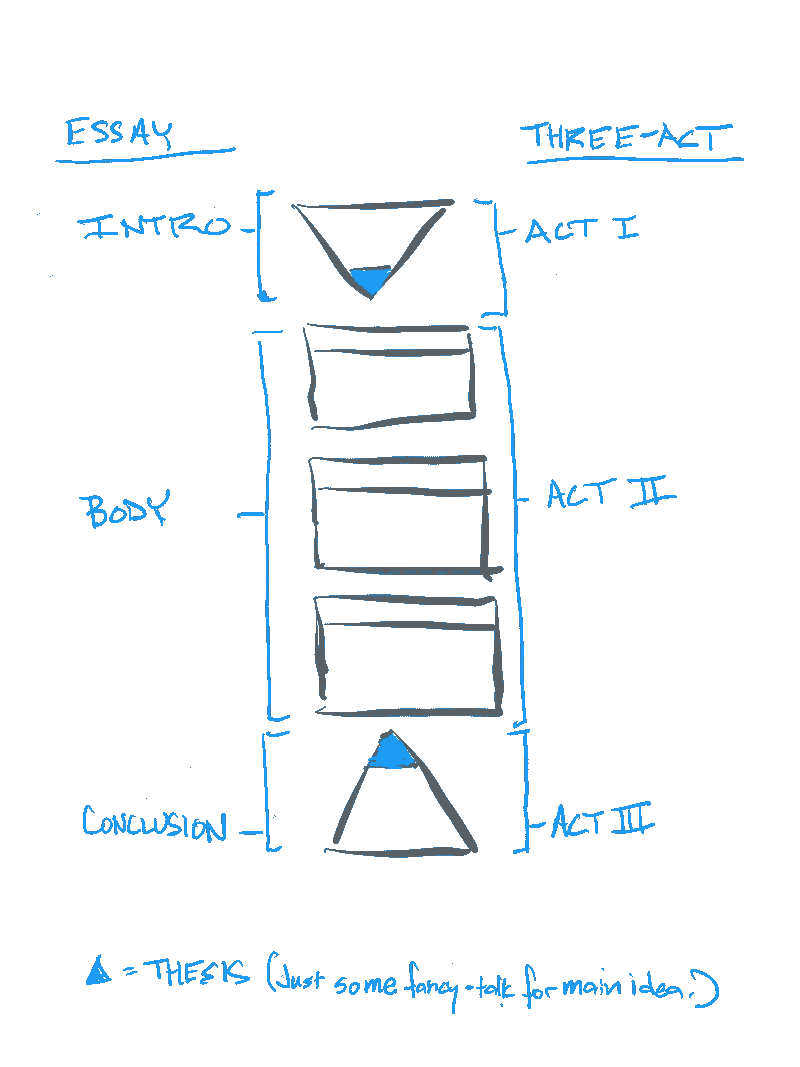 ESSAY
THREE-ACT
INTRO
ACT I
BODY
ACT II
CONCLUSION
ACT III
= THESIS (Just some fancy-talk for main idea.)